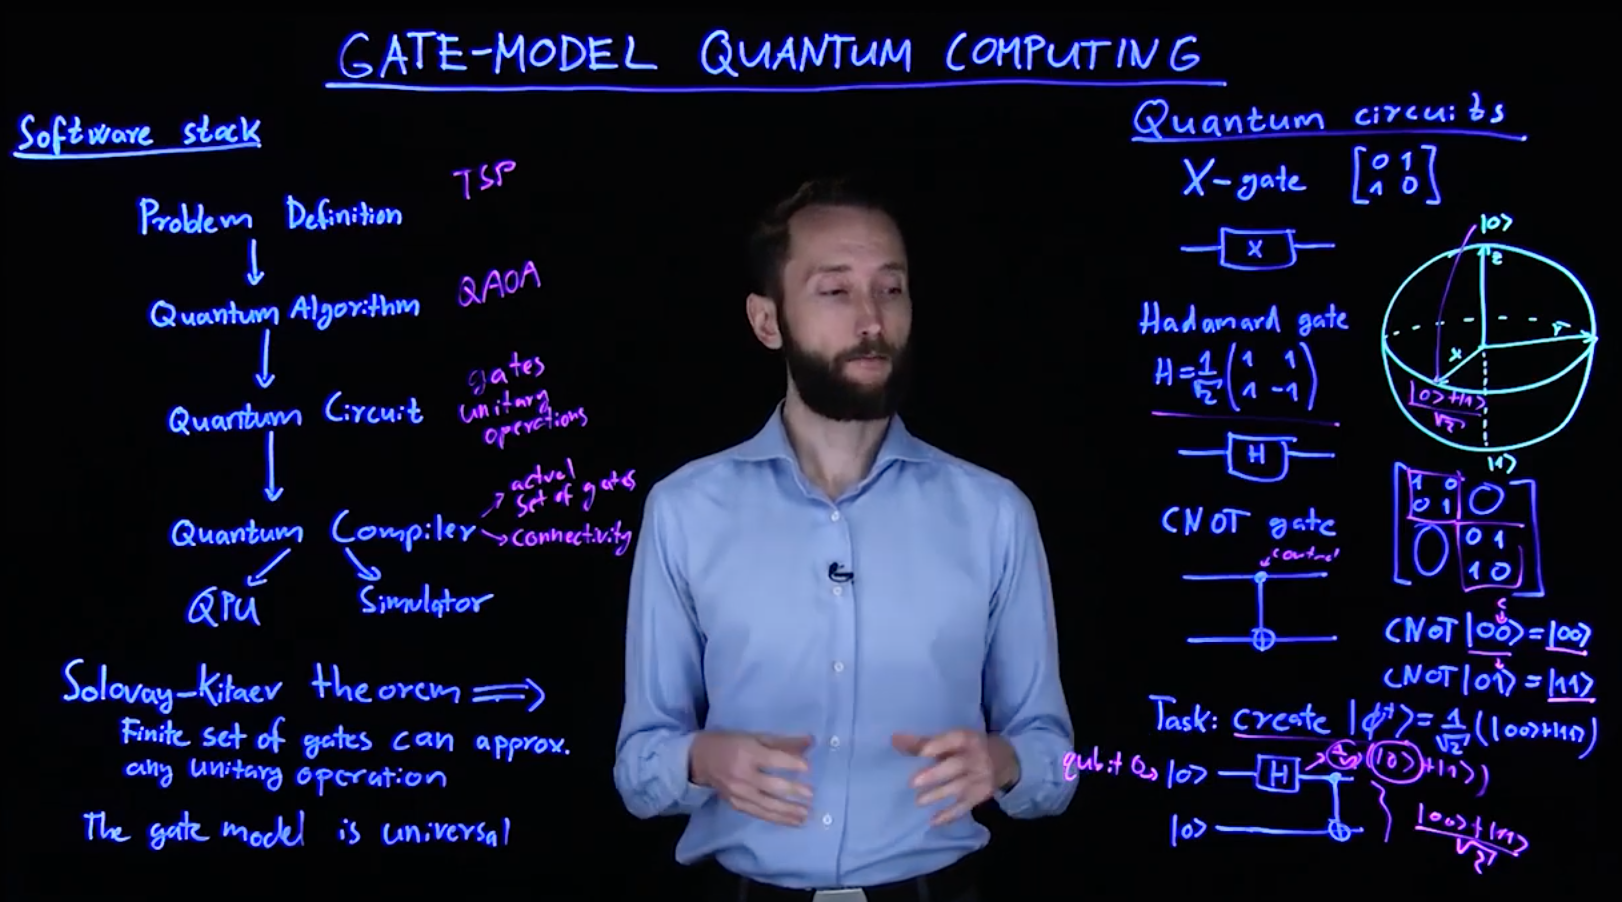 GATE-MODEL QUANTUM COMPUTING
Software stack
Problem Definition
TSP
Quantum Algorithm
QAOA
Quantum Circuit
gates
unitary
operations
Quantum Compiler
actual
set of gates
connectivity
QPU
Simulator
Solovay-Kitaev theorem ⟹
Finite set of gates can approx.
any unitary operation
The gate model is universal
Quantum circuits
X-gate [0 1
1 0]
X
Hadamard gate
H = 1/√2 (1 1
1 -1)
H
CNOT gate
control
|0>
z
x
|0>+|1>
√2
|1>
1 0 0
0 1
0 0 1
1 0
c
CNOT |00> = |00>
CNOT |01> = |11>
Task: create |ϕ⁺> = 1/√2 (|00>+|11>)
qubit 0 → |0> H 1/√2 (|0>+|1>)
|0>
|00>+|11>
√2